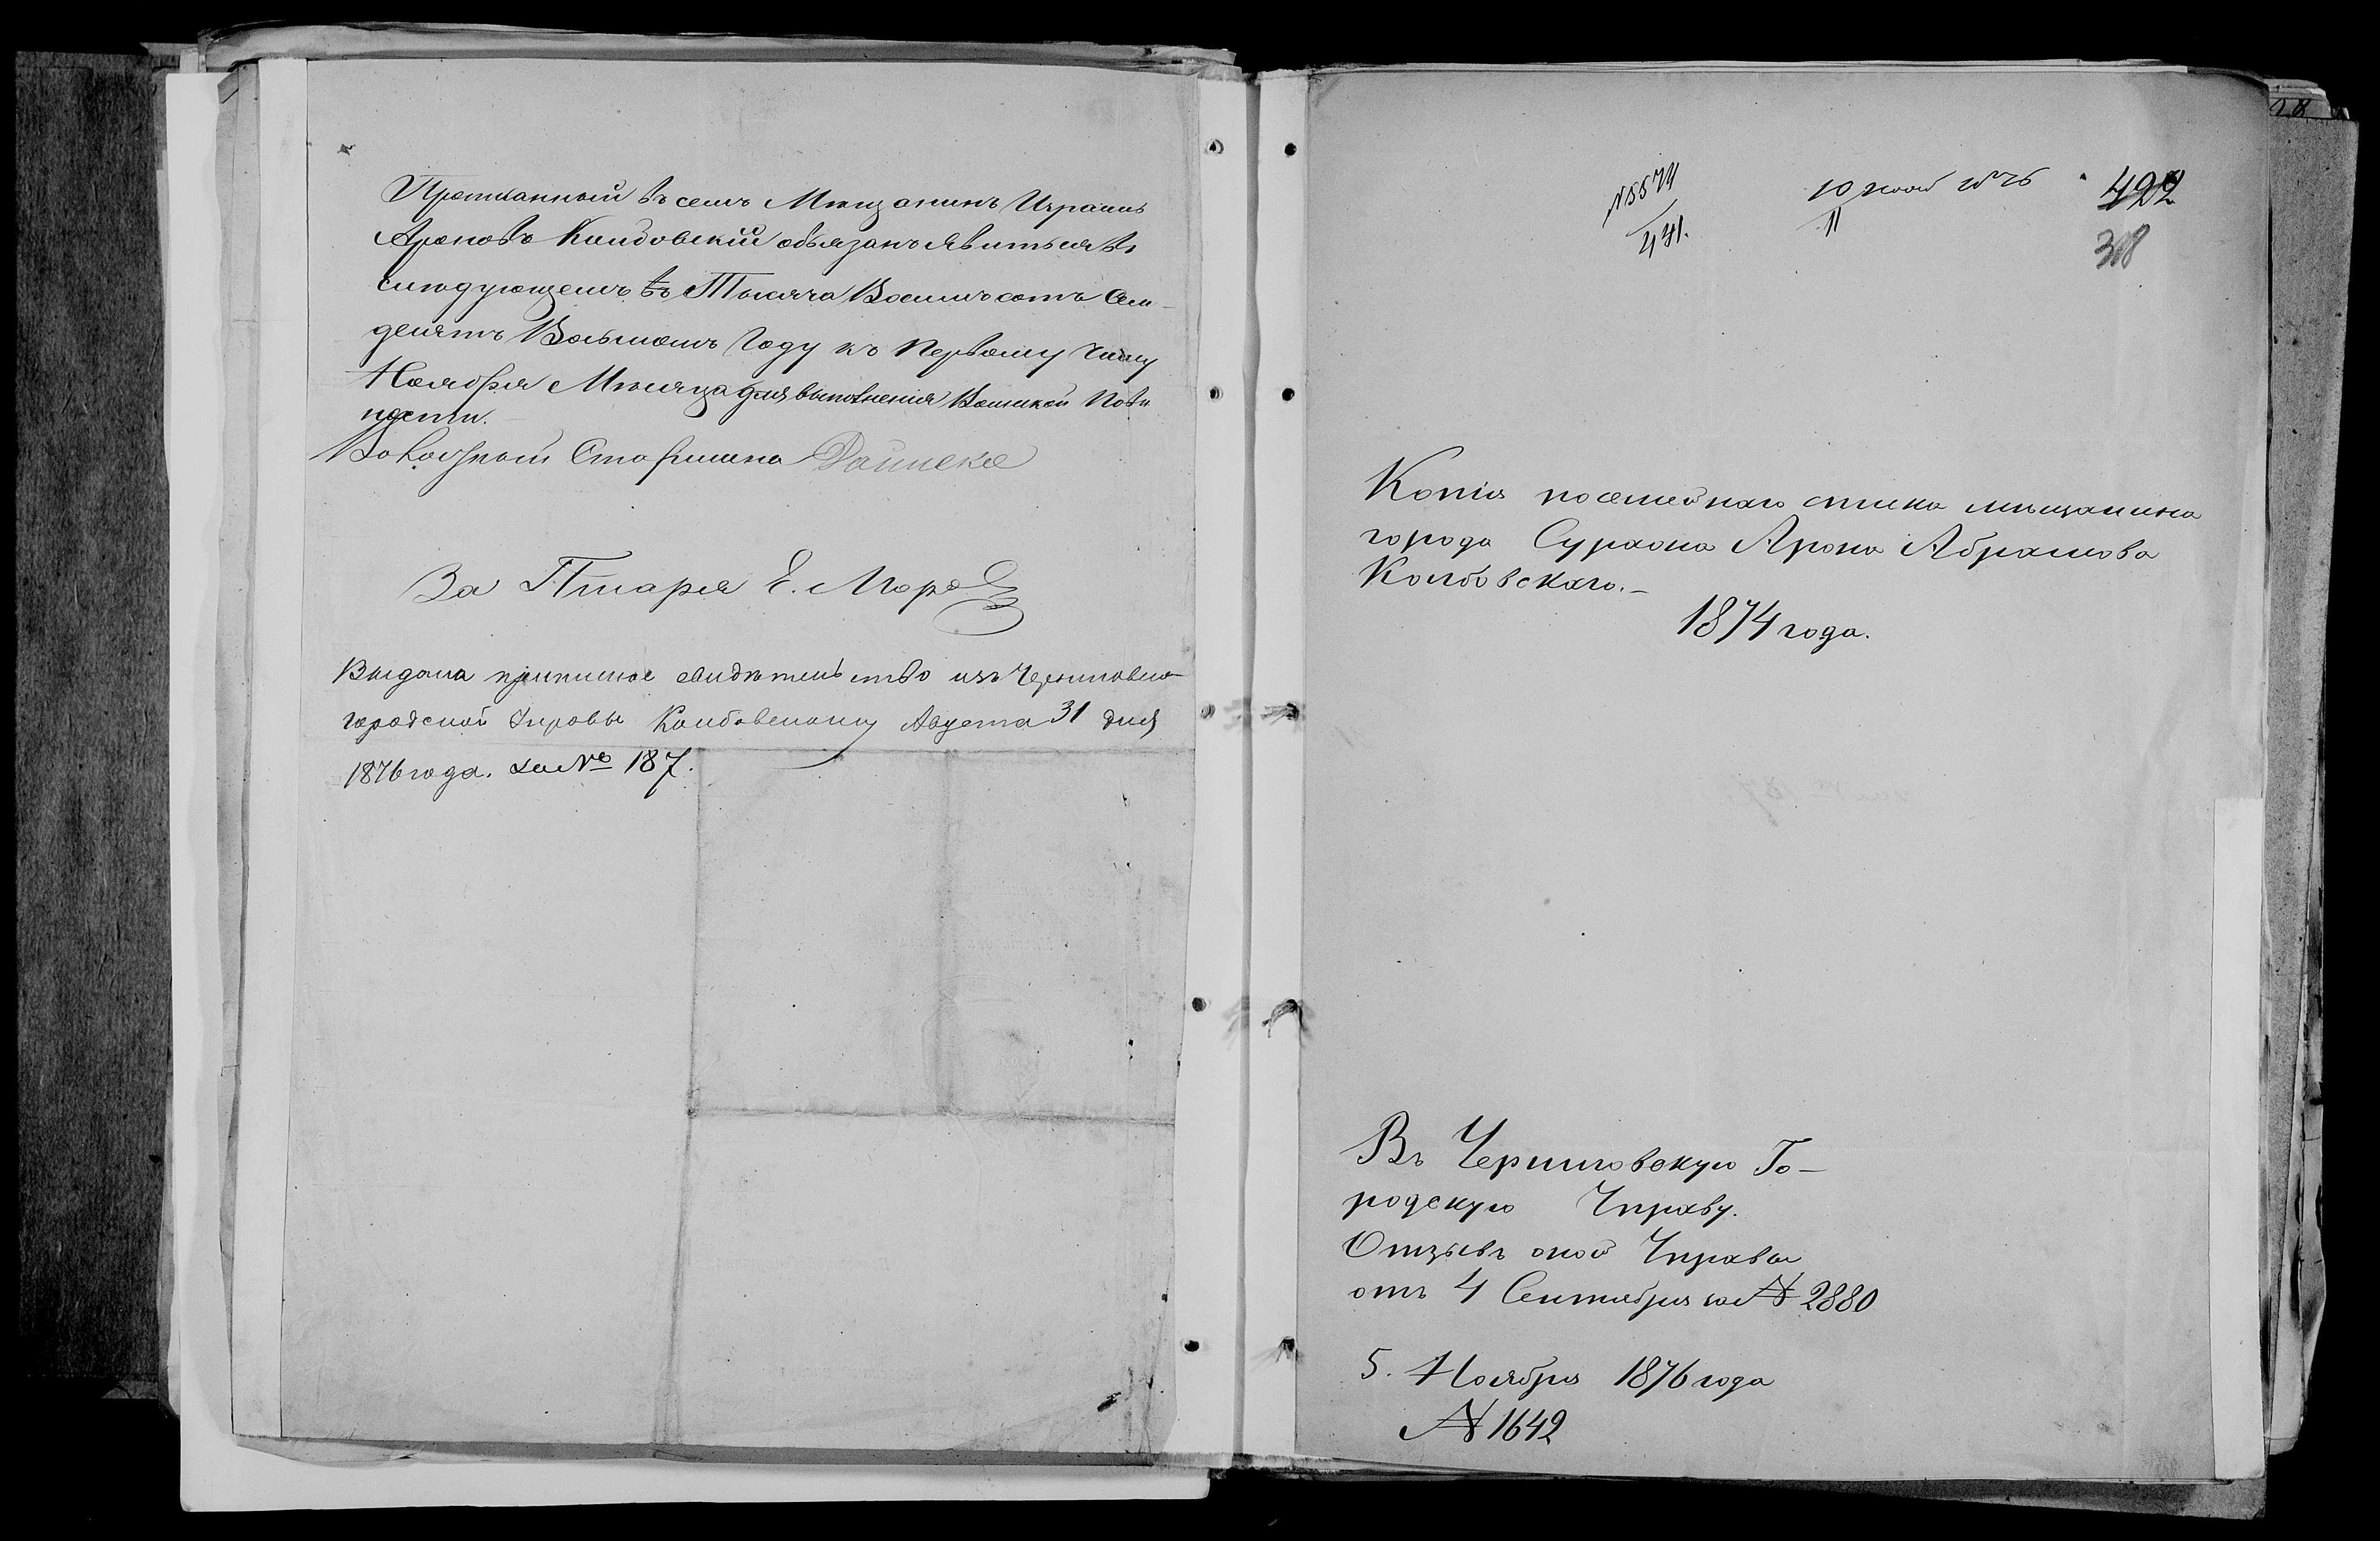 Прописанный въ семъ Мещанинъ Израиль
Ароновъ Колбовскій обязанъ явиться въ
следующемъ въ Тысяча Восемьсотъ Сем-
десятъ Восьмомъ Году къ Первому Числу
Ноября Месяца для выполнения Воинской Пови
ности.
Старшина
За Писаря Е. Мороз
Выдана приписное свидетельство изъ Черниговско
городской Управы Колбовскому Августа 31 дня
1876 года. за № 187.
N 5574
431.
10 1876
11
422
318
Копія посемейнаго списка мещанина
города Суража Арона Абрамова
Колбовскаго.-
1874 года.
Въ Черниговскую Го-
родскую Управу.
Отзывъ оной Управы
отъ 4 Сентября за № 2880
5. Ноября 1876 года
№ 1642